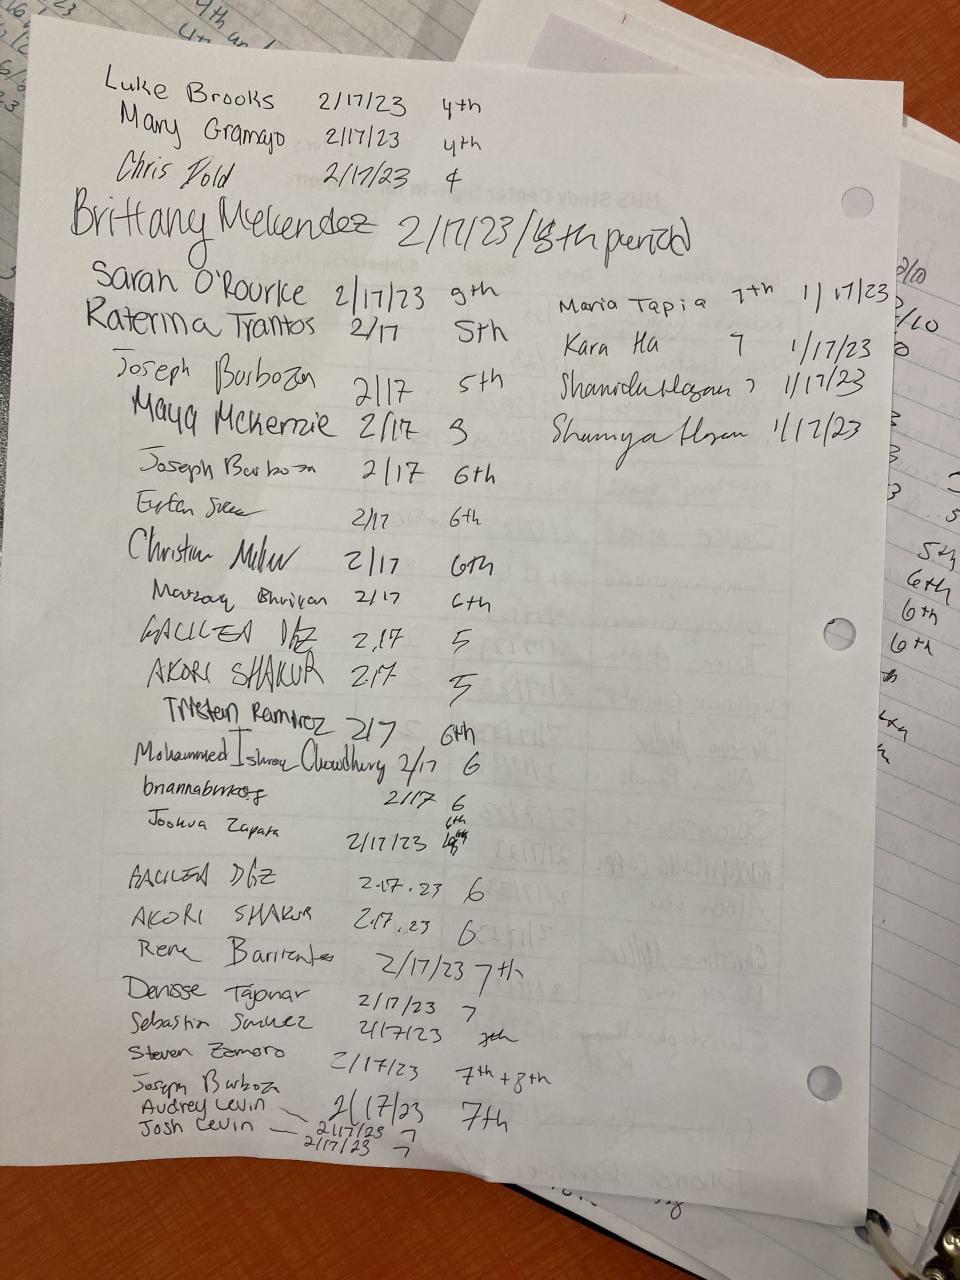 Luke Brooks 2/17/23 4th
Mary Gramajo 2/17/23 4th
Chris Dold 2/17/23 4
Brittany Melendez 2/17/23/8th period
Sarah O'Rourke 2/17/23 9th
Katerina Trantos 2/17 5th
Joseph Barboza 2/17 5th
Maya McKenzie 2/17 3
Joseph Barboza 2/17 6th
2/17 6th
Christian Miller 2/17 6th
Marzaq Bhuiyan 2/17 6th
GALILEA DGZ 2.17 5
AKORI SHAKUR 2.17 5
Tristan Ramirez 2/7 6th
Mohammed Chowdhury 2/17 6
2/17 6
Joshua Zapata 2/17/23 6th
GALILEA DGZ 2.17.23 6
AKORI SHAKUR 2.17.23 6
Rene Barrientos 2/17/23 7th
Denisse 2/17/23 7
Sebastian 2/17/23 7th
Steven Zamora 2/17/23 7th + 8th
Joseph Barboza 2/17/23 7th
Audrey Levin 2/17/23 7
Josh Levin 2/17/23 7
Maria Tapia 7th 1/17/23
Kara Ha 7 1/17/23
Hasan 7 1/17/23
Shamya Hasan 1/17/23
5th
6th
6th
6th